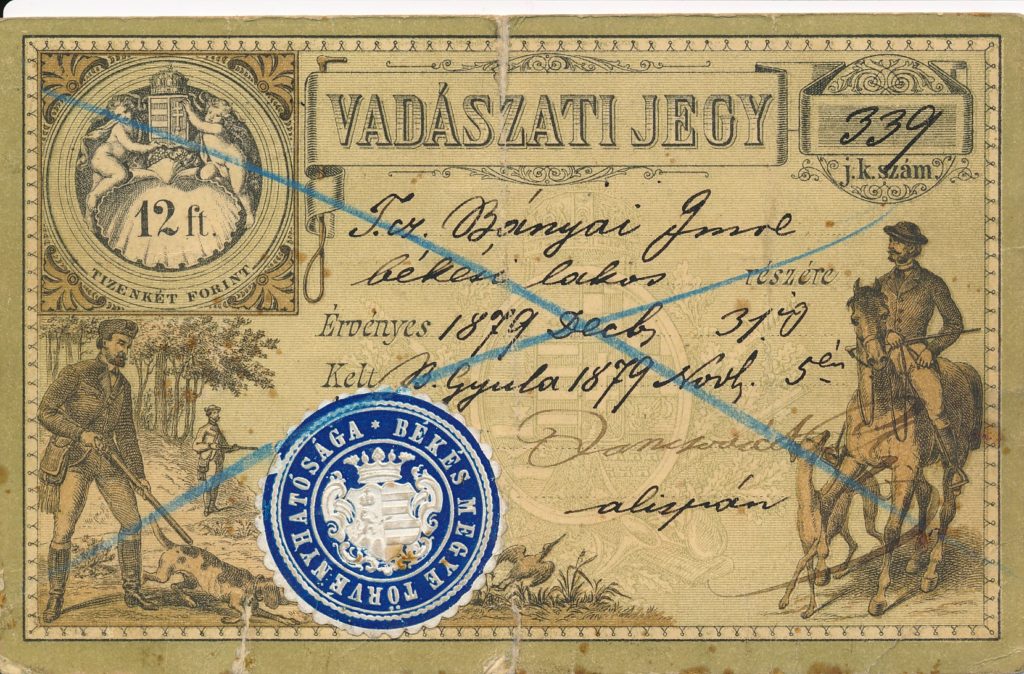 12 ft.
TIZENKÉT FORINT
VADÁSZATI JEGY
339
j.k.szám.
T.cz. Bányai Imre
békési lakos részére
Érvényes 1879 Decb. 31.ig
Kelt B. Gyula 1879 Novb. 5én
alispán
* BÉKÉS MEGYE TÖRVÉNYHATÓSÁGA